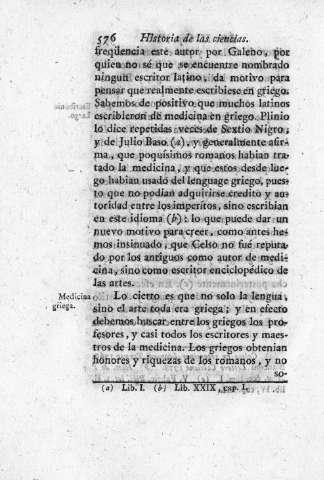 576 Historia de las ciencias.
freqüencia este autor por Galeno, por
quien no sé que se encuentre nombrado
ningun escritor latino, da motivo para
pensar que realmente escribiese en griego.
Sabemos de positivo que muchos latinos
escribieron de medicina en griego. Plinio
lo dice repetidas veces de Sextio Nigro,
y de Julio Baso (a), y generalmente afir-
ma, que poquísimos romanos habian tra-
tado la medicina, y que estos desde lue-
go habian usado del lenguage griego, pues-
to que no podian adquirirse credito y au-
toridad entre los imperitos, sino escribian
en este idioma (b): lo que puede dar un
nuevo motivo para creer, como antes he-
mos insinuado, que Celso no fué reputa-
do por los antiguos como autor de medi-
cina, sino como escritor enciclopédico de
las artes.
Medicina
griega.
Lo cierto es que no solo la lengua,
sino el arte toda era griega; y en efecto
debemos buscar entre los griegos los pro-
fesores, y casi todos los escritores y maes-
tros de la medicina. Los griegos obtenian
honores y riquezas de los romanos, y no
so-
(a) Lib. I. (b) Lib. XXIX, cap. I.